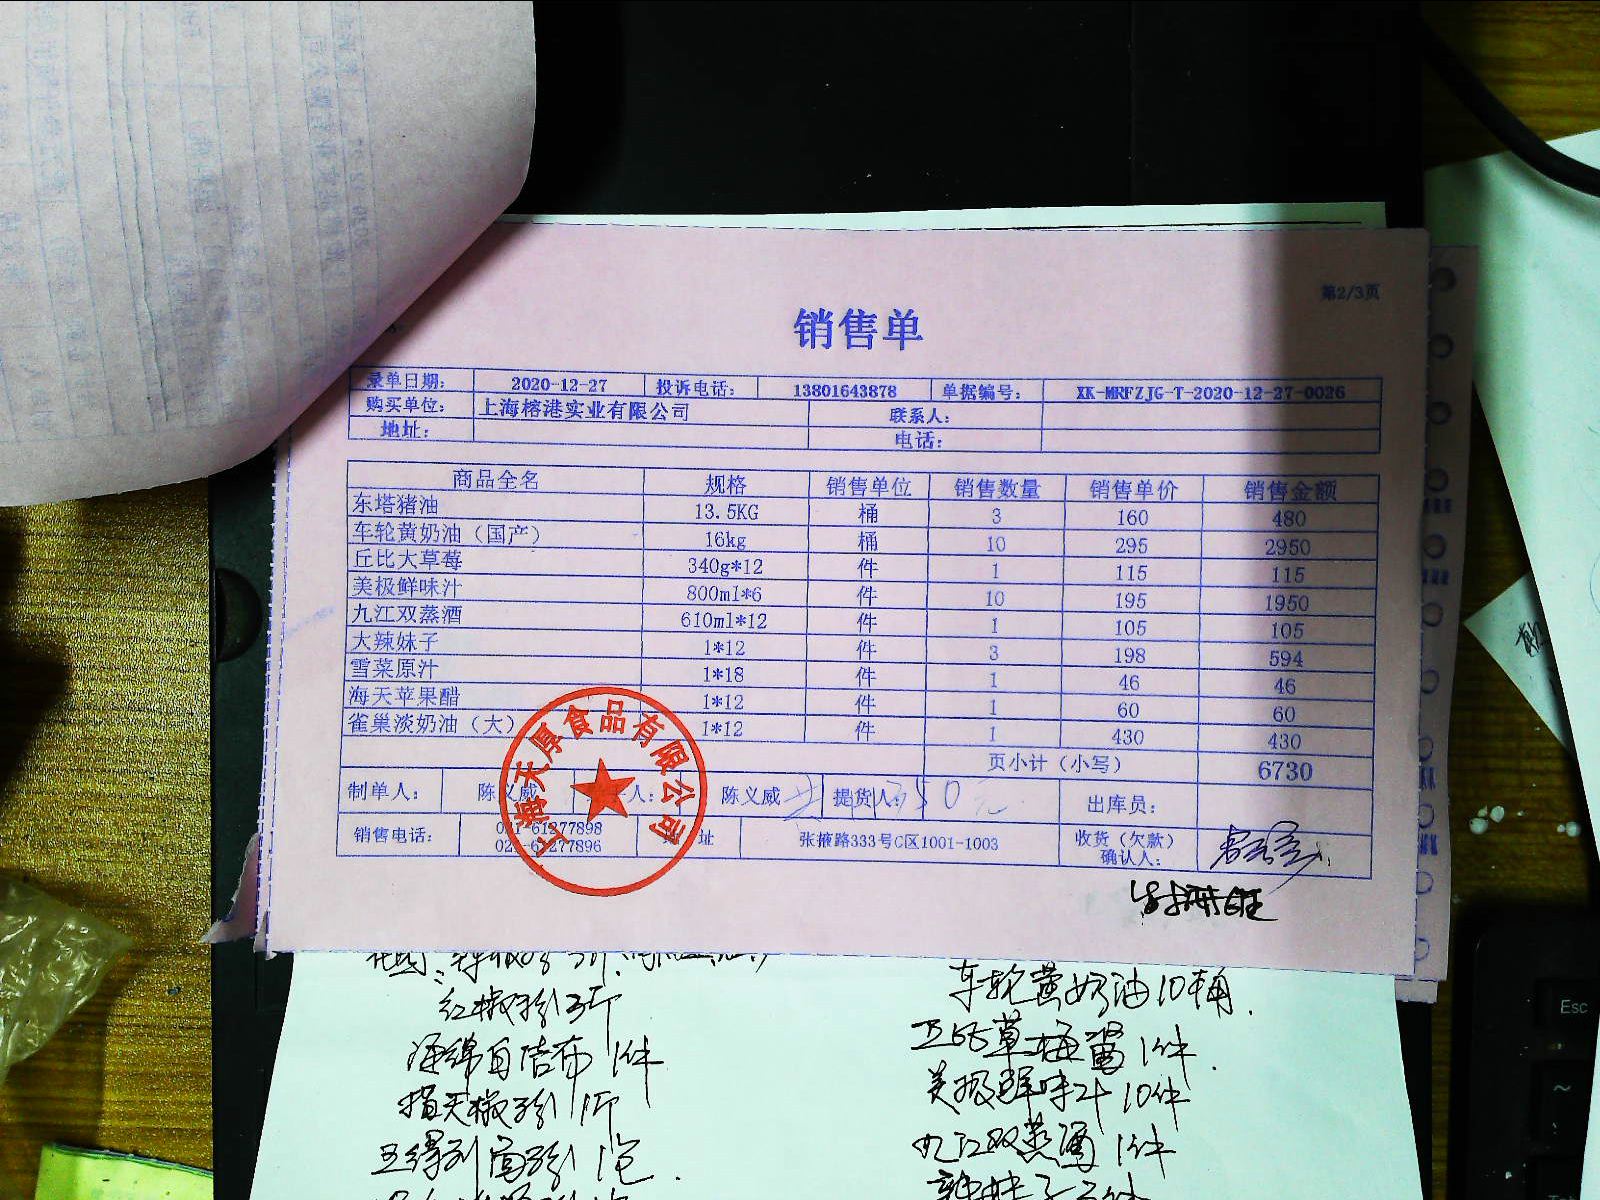 第2/3页
销售单
录单日期： 2020-12-27 投诉电话： 13801643878 单据编号： XK-MRFZJG-T-2020-12-27-0026
购买单位： 上海榕港实业有限公司 联系人：
地址： 电话：
商品全名 规格 销售单位 销售数量 销售单价 销售金额
东塔猪油 13.5KG 桶 3 160 480
车轮黄奶油（国产） 16kg 桶 10 295 2950
丘比大草莓 340g*12 件 1 115 115
美极鲜味汁 800ml*6 件 10 195 1950
九江双蒸酒 610ml*12 件 1 105 105
大辣妹子 1*12 件 3 198 594
雪菜原汁 1*18 件 1 46 46
海天苹果醋 1*12 件 1 60 60
雀巢淡奶油（大） 1*12 件 1 430 430
页小计（小写） 6730
制单人： 陈义威 人： 陈义威 提货人 出库员：
销售电话： 021-61277898 地址 张掖路333号C区1001-1003 收货（欠款）
021-61277896 确认人：
上海天厚食品有限公司
红椒粉3斤
海绵百洁布1件
指天椒粉1斤
车轮黄奶油10桶.
草梅酱1件.
美极鲜味汁10件
九江双蒸酒1件
Esc